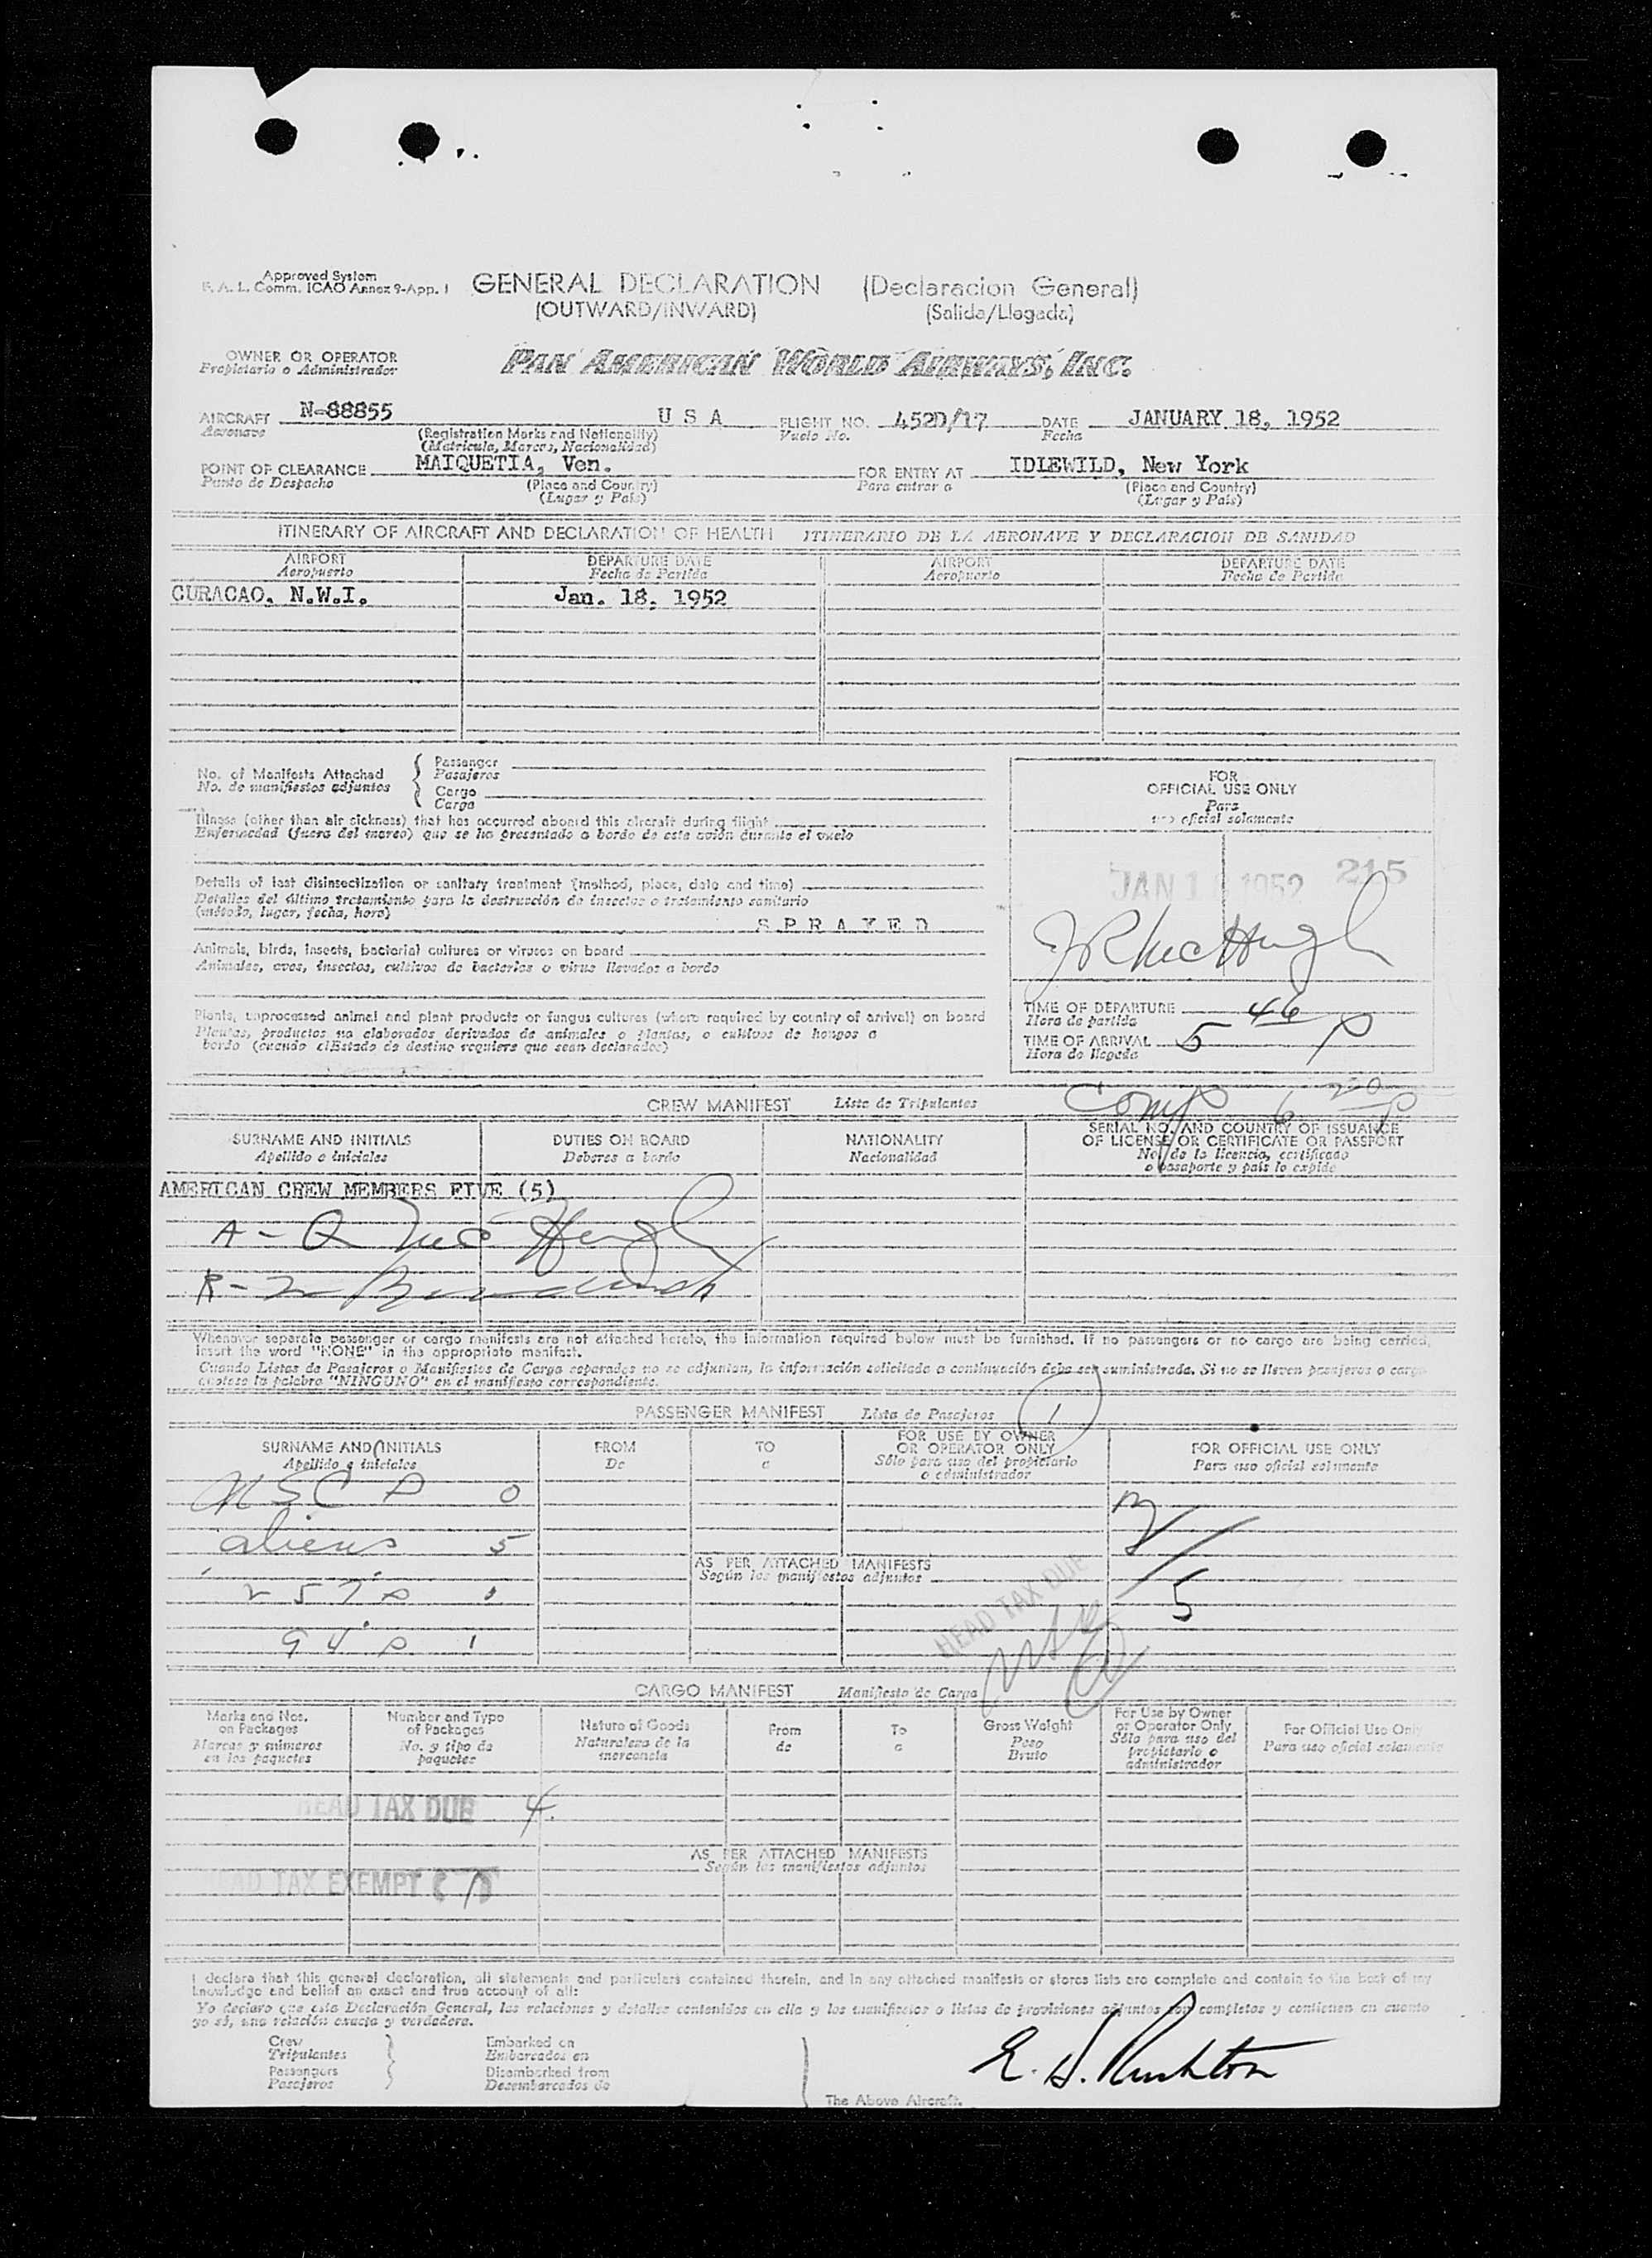 Approved System
F. A. L. Comm. ICAO Annex 9-App. 1
GENERAL DECLARATION (Declaracion General)
(OUTWARD/INWARD) (Salida/Llegada)
OWNER OR OPERATOR
Propietario o Administrador
PAN AMERICAN WORLD AIRWAYS, INC.
AIRCRAFT N-88855 U S A FLIGHT NO. 452D/17 DATE JANUARY 18, 1952
Aeronave (Registration Marks and Nationality) Vuelo No. Fecha
(Matricula, Marcas, Nacionalidad)
POINT OF CLEARANCE MAIQUETIA, Ven. FOR ENTRY AT IDLEWILD, New York
Punto de Despacho (Place and Country) Para entrar a (Place and Country)
(Lugar y País) (Lugar y País)
ITINERARY OF AIRCRAFT AND DECLARATION OF HEALTH ITINERARIO DE LA AERONAVE Y DECLARACION DE SANIDAD
AIRPORT DEPARTURE DATE AIRPORT DEPARTURE DATE
Aeropuerto Fecha de Partida Aeropuerto Fecha de Partida
CURACAO, N.W.I. Jan. 18, 1952
No. of Manifests Attached
No. de manifiestos adjuntos
Passenger
Pasajeros
Cargo
Carga
Illness (other than air sickness) that has occurred aboard this aircraft during flight
Enfermedad (fuera del mareo) que se ha presentado a bordo de este avión durante el vuelo
Details of last disinsectization or sanitary treatment (method, place, date and time)
Detalles del último tratamiento para la destrucción de insectos o tratamiento sanitario
(método, lugar, fecha, hora)
S P R A Y E D
Animals, birds, insects, bacterial cultures or viruses on board
Animales, aves, insectos, cultivos de bacterias o virus llevados a bordo
Plants, unprocessed animal and plant products or fungus cultures (where required by country of arrival) on board
Plantas, productos no elaborados derivados de animales o plantas, o cultivos de hongos a
bordo (cuando el Estado de destino requiera que sean declarados)
FOR
OFFICIAL USE ONLY
Para
uso oficial solamente
JAN 1 1952 215
J R McHugh
TIME OF DEPARTURE
Hora de partida
TIME OF ARRIVAL 5 46 P
Hora de llegada
Comp 6 20 P
CREW MANIFEST Lista de Tripulantes
SURNAME AND INITIALS DUTIES ON BOARD NATIONALITY SERIAL NO. AND COUNTRY OF ISSUANCE
Apellido e iniciales Deberes a bordo Nacionalidad OF LICENSE OR CERTIFICATE OR PASSPORT
No. de la licencia, certificado
o pasaporte y país lo expide
AMERICAN CREW MEMBERS FIVE (5)
A - Q McHugh
R -
Whenever separate passenger or cargo manifests are not attached hereto, the information required below must be furnished. If no passengers or no cargo are being carried,
insert the word "NONE" in the appropriate manifest.
Cuando Listas de Pasajeros o Manifiestos de Carga separados no se adjuntan, la información solicitada a continuación debe ser suministrada. Si no se lleven pasajeros o carga
anótese la palabra "NINGUNO" en el manifiesto correspondiente.
PASSENGER MANIFEST Lista de Pasajeros 1
SURNAME AND INITIALS FROM TO FOR USE BY OWNER FOR OFFICIAL USE ONLY
Apellido e iniciales De a OR OPERATOR ONLY Para uso oficial solamente
Sólo para uso del propietario
o administrador
USC P 0
aliens 5
257 P 1
94 P 1
AS PER ATTACHED MANIFESTS
Según los manifiestos adjuntos
5
HEAD TAX DUE
CARGO MANIFEST Manifiesto de Carga
Marks and Nos. Number and Type Nature of Goods From To Gross Weight For Use by Owner For Official Use Only
on Packages of Packages Naturaleza de la de a Peso or Operator Only Para uso oficial solamente
Marcas y números No. y tipo de mercancía Bruto Sólo para uso del
en los paquetes paquetes propietario o
administrador
HEAD TAX DUE 4
AS PER ATTACHED MANIFESTS
Según los manifiestos adjuntos
HEAD TAX EXEMPT
I declare that this general declaration, all statements and particulars contained therein, and in any attached manifests or stores lists are complete and contain to the best of my
knowledge and belief an exact and true account of all:
Yo declaro que esta Declaración General, las relaciones y detalles contenidos en ella y los manifiestos o listas de provisiones adjuntos son completos y contienen en cuanto
yo sé, una relación exacta y verdadera.
Crew Embarked on
Tripulantes Embarcados en
Passengers Disembarked from
Pasajeros Desembarcados de
The Above Aircraft.
E. H. Rushton